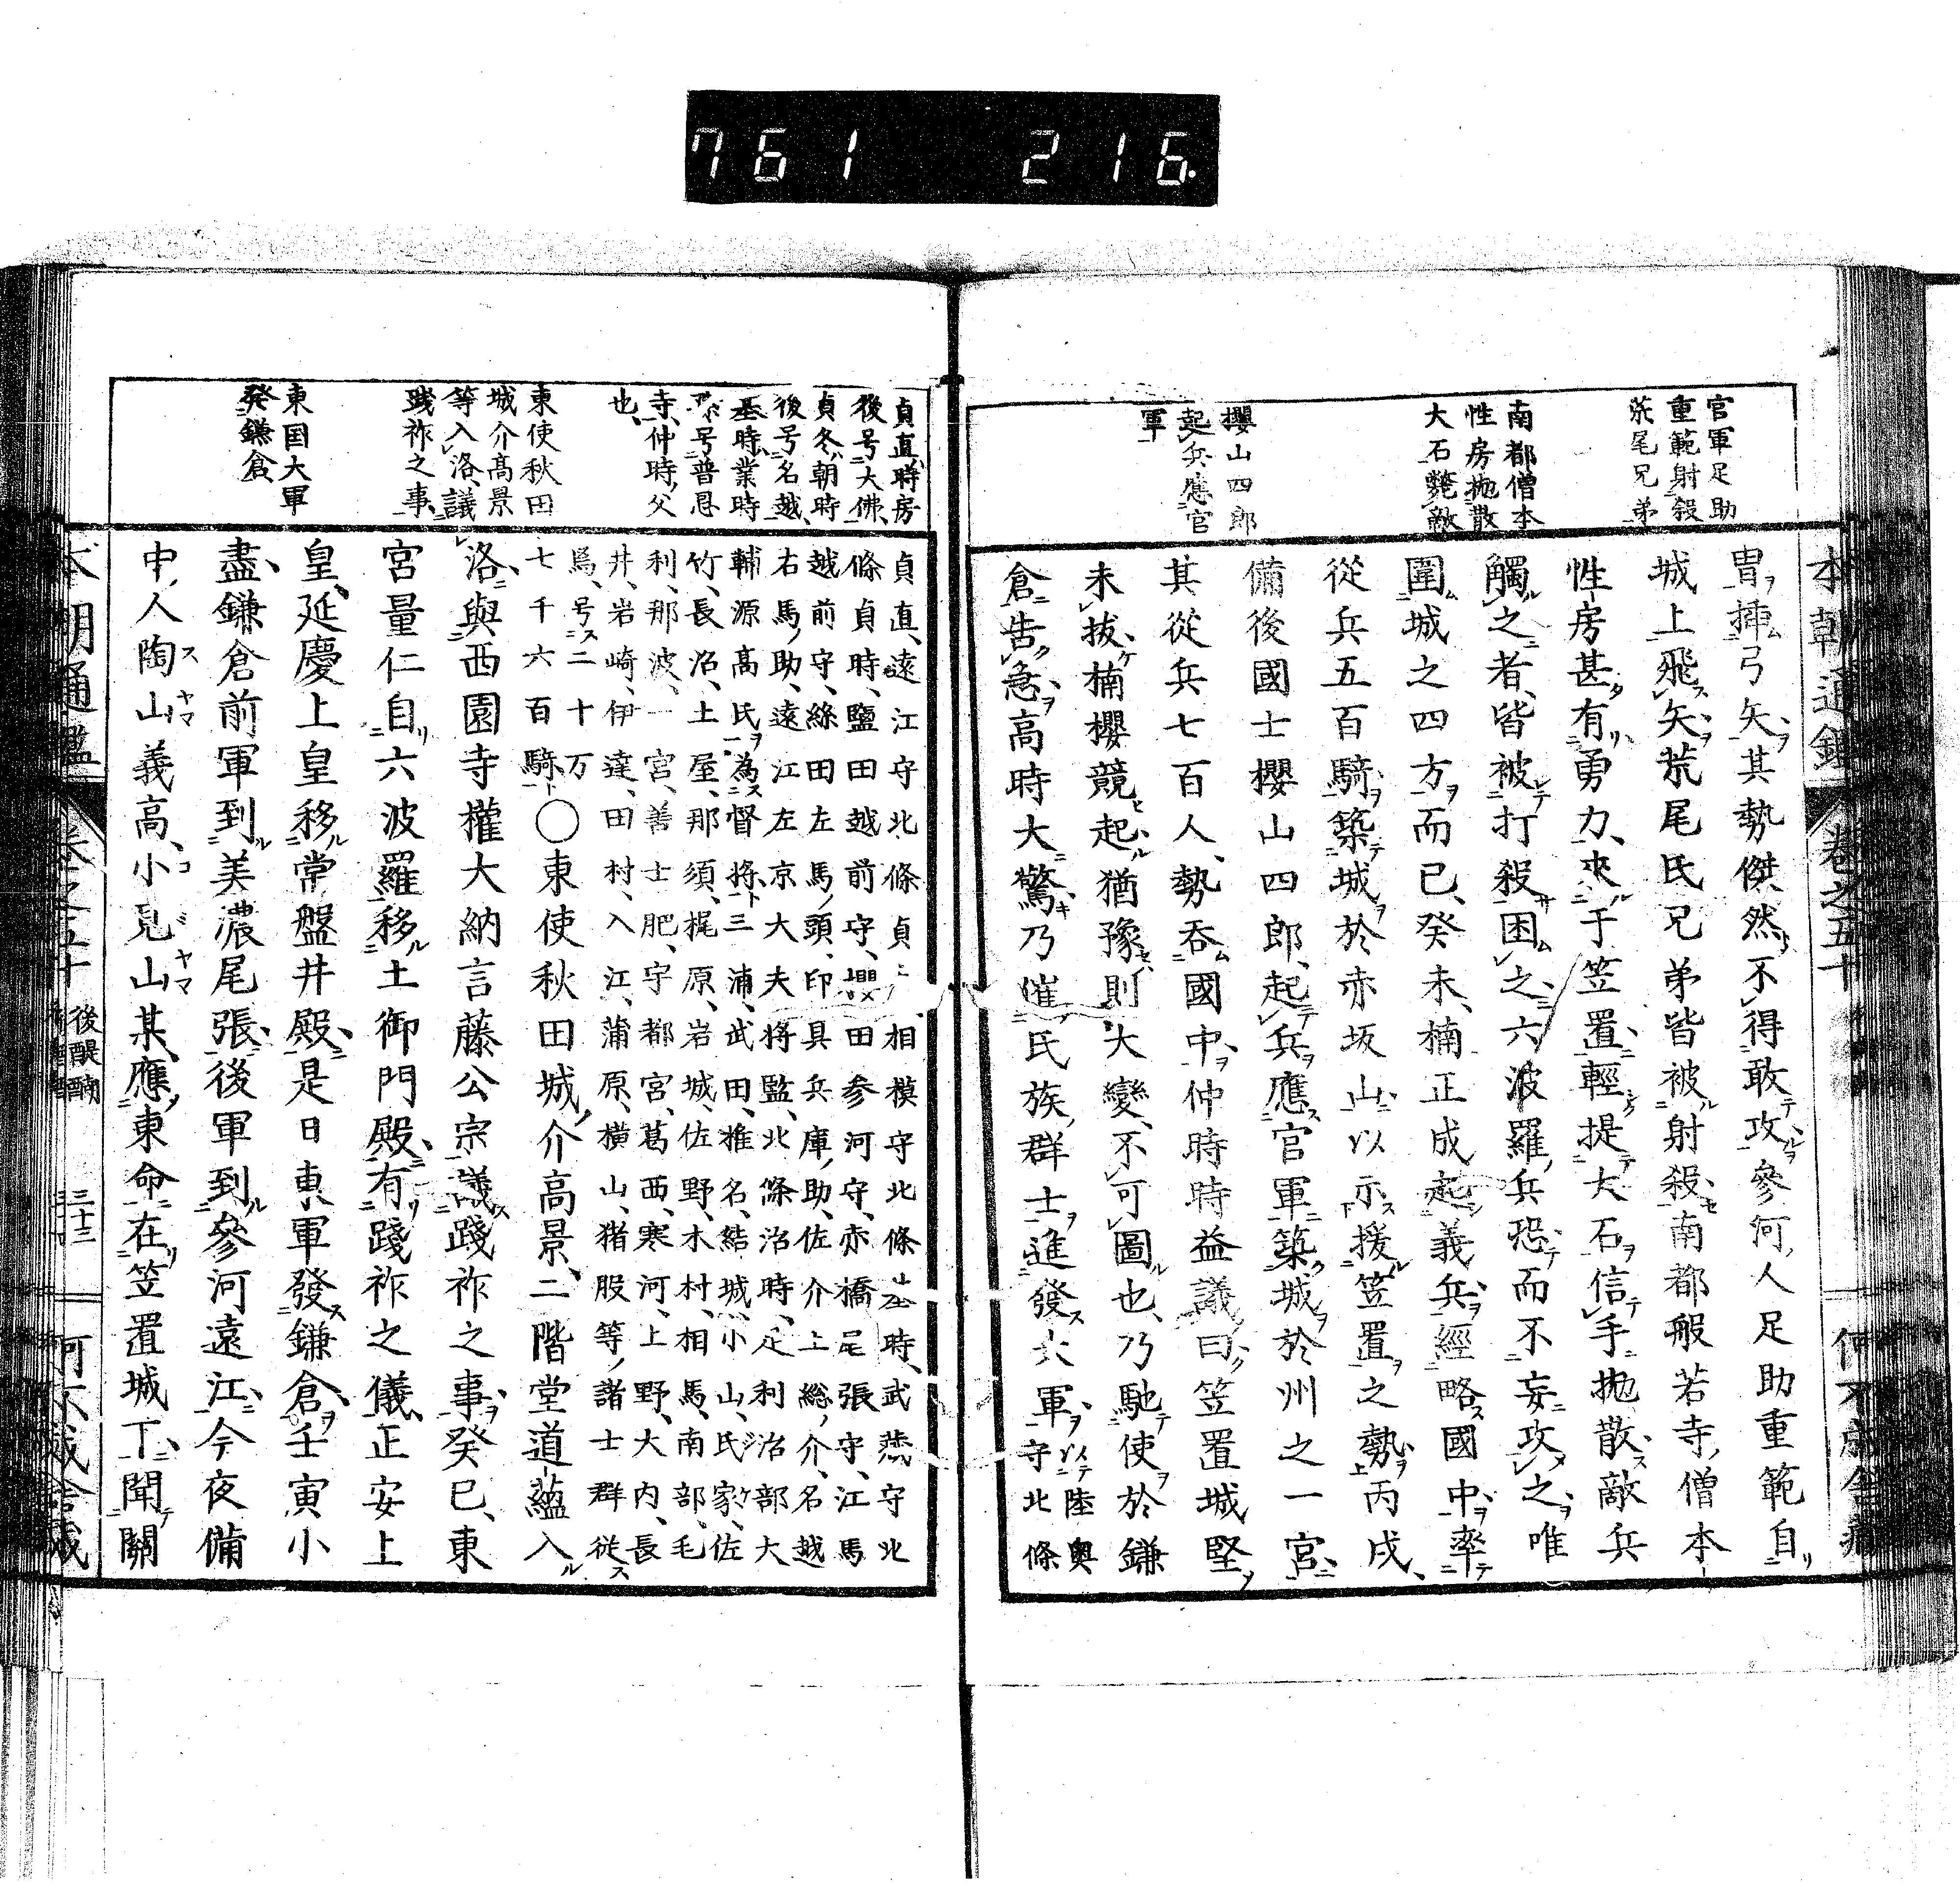 761 216.
官軍足助
重範射殺
荒尾兄弟
南都僧本
性房抛散
大石斃敵
櫻山四郎
起兵應官
軍
冑挿弓矢其勢傑然不得敢攻參河人足助重範自
城上飛矢荒尾氏兄弟皆被射殺南都般若寺僧本
性房甚有勇力來于笠置輕提大石信手抛散敵兵
觸之者皆被打殺困之六波羅兵恐而不妄攻之唯
圍城之四方而已癸未楠正成起義兵經略國中率
從兵五百騎築城於赤坂山以示援笠置之勢丙戌
備後國士櫻山四郎起兵應官軍築城於州之一宮
其從兵七百人勢吞國中仲時時益議曰笠置城堅
未拔楠櫻競起猶豫則大變不可圖也乃馳使於鎌
倉告急高時大驚乃催氏族群士進發大軍陸奥
守北條
貞直時房
後号大佛
貞冬朝時
後号名越
基時業時
号普恩
寺仲時父
也
東使秋田
城介高景
等入洛議
踐祚之事
東国大軍
発鎌倉
貞直遠江守北條貞 相模守北條基時武藏守北
條貞時鹽田越前守櫻田参河守赤橋尾張守江馬
越前守絲田左馬頭印具兵庫助佐介上総介名越
右馬助遠江左京大夫将監北條治時足利治部大
輔源高氏為督将三浦武田椎名結城小山氏家佐
竹長沼土屋那須梶原岩城佐野木村相馬南部毛
利那波一宮善士肥宇都宮葛西寒河上野大内長
井岩崎伊達田村入江蒲原横山猪股等諸士群従
爲号二十万
七千六百騎○東使秋田城介高景二階堂道蘊入
洛與西園寺權大納言藤公宗議踐祚之事癸巳東
宮量仁自六波羅移土御門殿有踐祚之儀正安上
皇延慶上皇移常盤井殿是日東軍發鎌倉壬寅小
盡鎌倉前軍到美濃尾張後軍到參河遠江今夜備
中人陶山義高小見山某應東命在笠置城下聞關
後醍醐
三十三